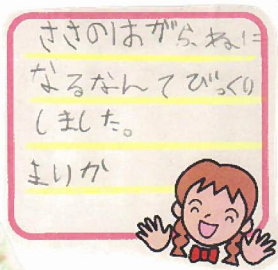 ささのはがら、ねに
なるなんてびっくり
しました。
まりか